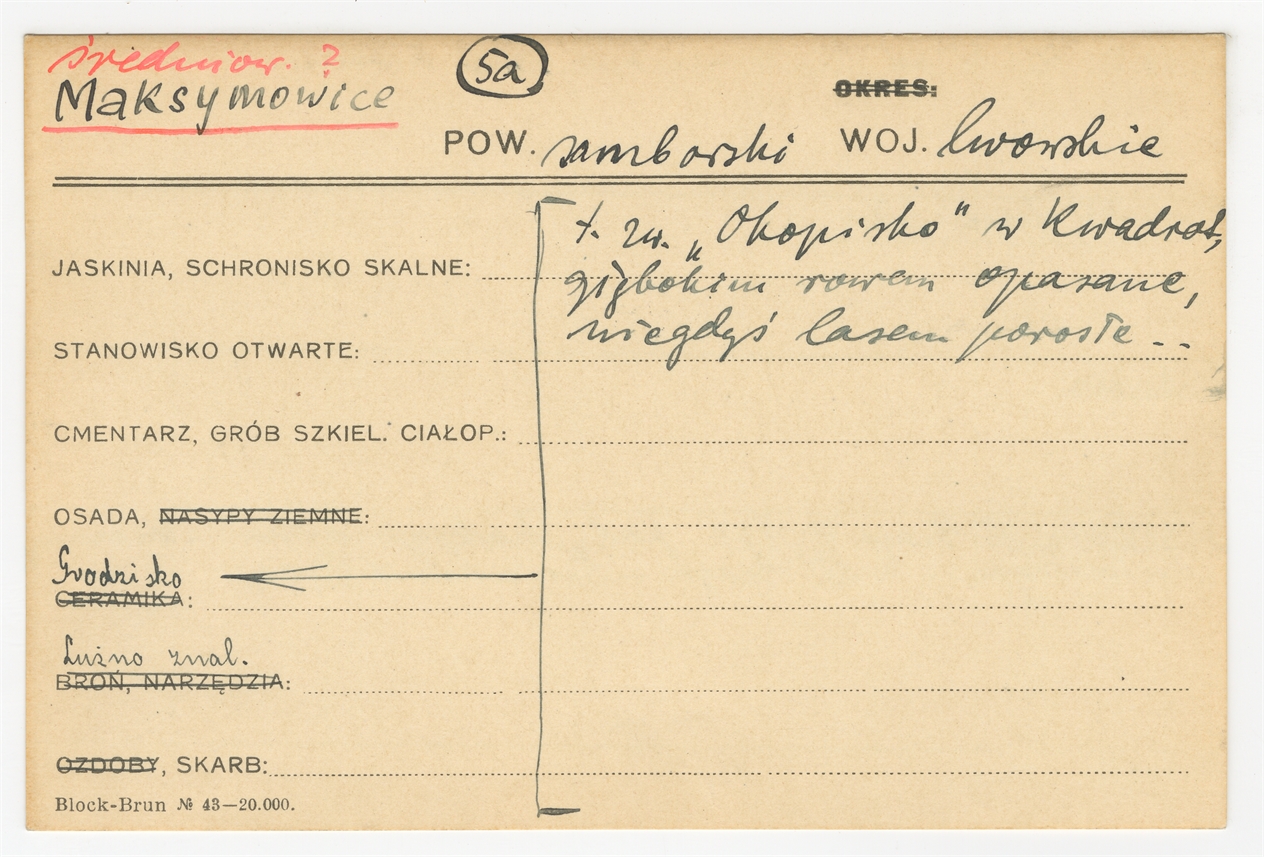 średniow. ?
Maksymowice
5a
OKRES:
POW. samborski WOJ. lwowskie
t. zw. „Okopisko" w kwadrat,
JASKINIA, SCHRONISKO SKALNE:
głębokim rowem opasane,
niegdyś lasem porosłe . .
STANOWISKO OTWARTE:
CMENTARZ, GRÓB SZKIEL. CIAŁOP.:
OSADA, NASYPY ZIEMNE:
Grodzisko
CERAMIKA:
Luźno znal.
BROŃ, NARZĘDZIA:
OZDOBY, SKARB:
Block-Brun № 43—20.000.